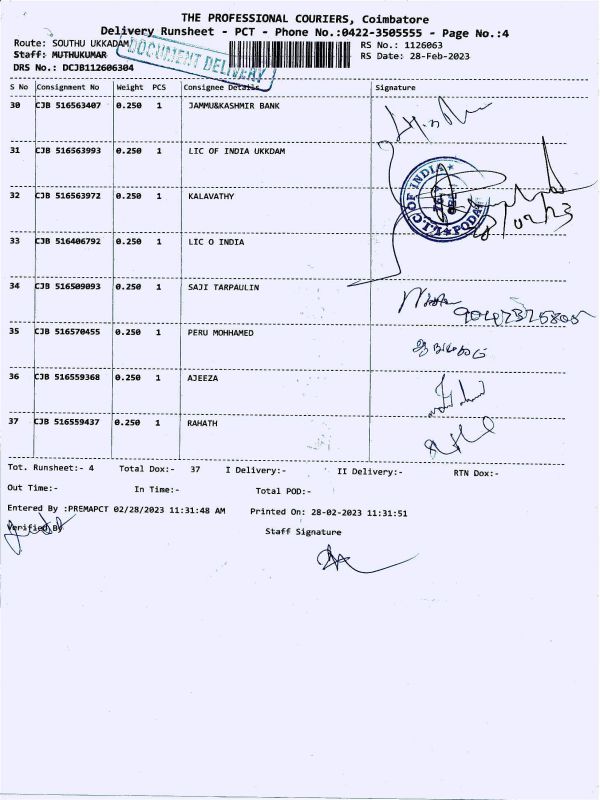 THE PROFESSIONAL COURIERS, Coimbatore
Delivery Runsheet - PCT - Phone No.:0422-3505555 - Page No.:4
Route: SOUTHU UKKADAM
RS No.: 1126063
Staff: MUTHUKUMAR
RS Date: 28-Feb-2023
DRS No.: DCJB112606304
DOCUMENT DELIVERY
S No Consignment No Weight PCS Consignee Details Signature
30 CJB 516563407 0.250 1 JAMMU&KASHMIR BANK
31 CJB 516563993 0.250 1 LIC OF INDIA UKKDAM
L.I.C. OF INDIA
PODA
32 CJB 516563972 0.250 1 KALAVATHY
33 CJB 516406792 0.250 1 LIC O INDIA
34 CJB 516509093 0.250 1 SAJI TARPAULIN
35 CJB 516570455 0.250 1 PERU MOHHAMED
36 CJB 516559368 0.250 1 AJEEZA
37 CJB 516559437 0.250 1 RAHATH
Tot. Runsheet:- 4 Total Dox:- 37 I Delivery:- II Delivery:- RTN Dox:-
Out Time:- In Time:- Total POD:-
Entered By :PREMAPCT 02/28/2023 11:31:48 AM Printed On: 28-02-2023 11:31:51
Verified By
Staff Signature